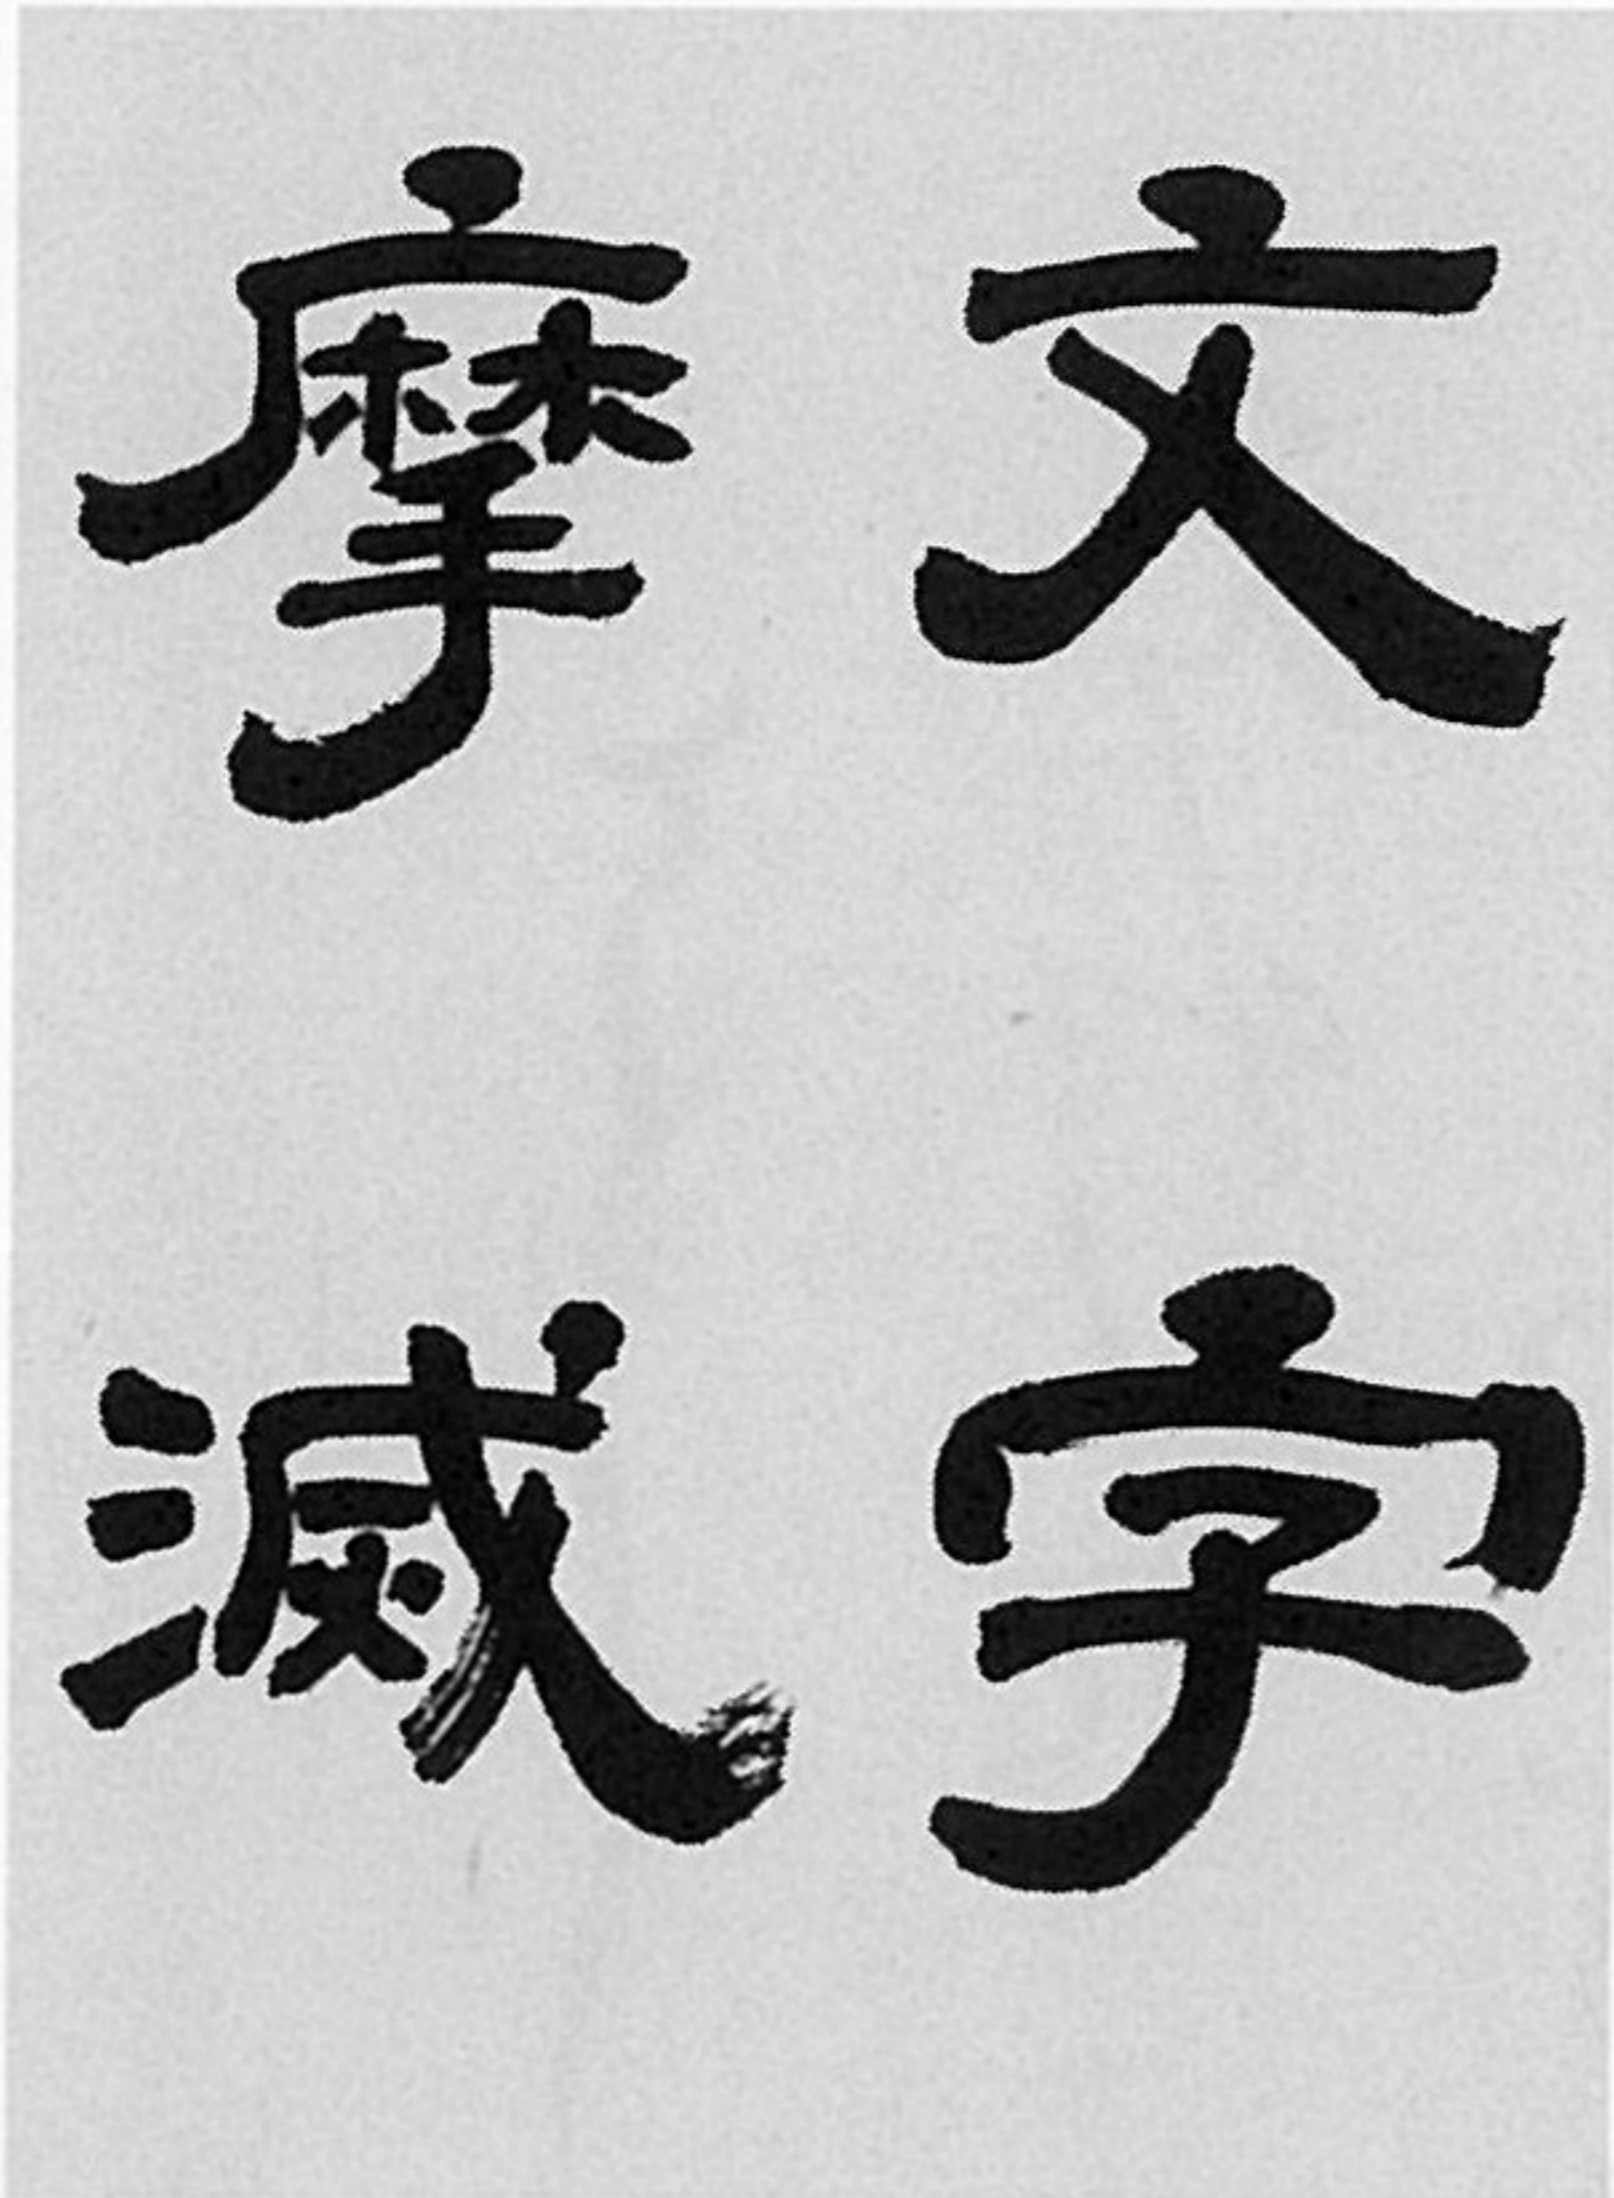 文字
摩滅